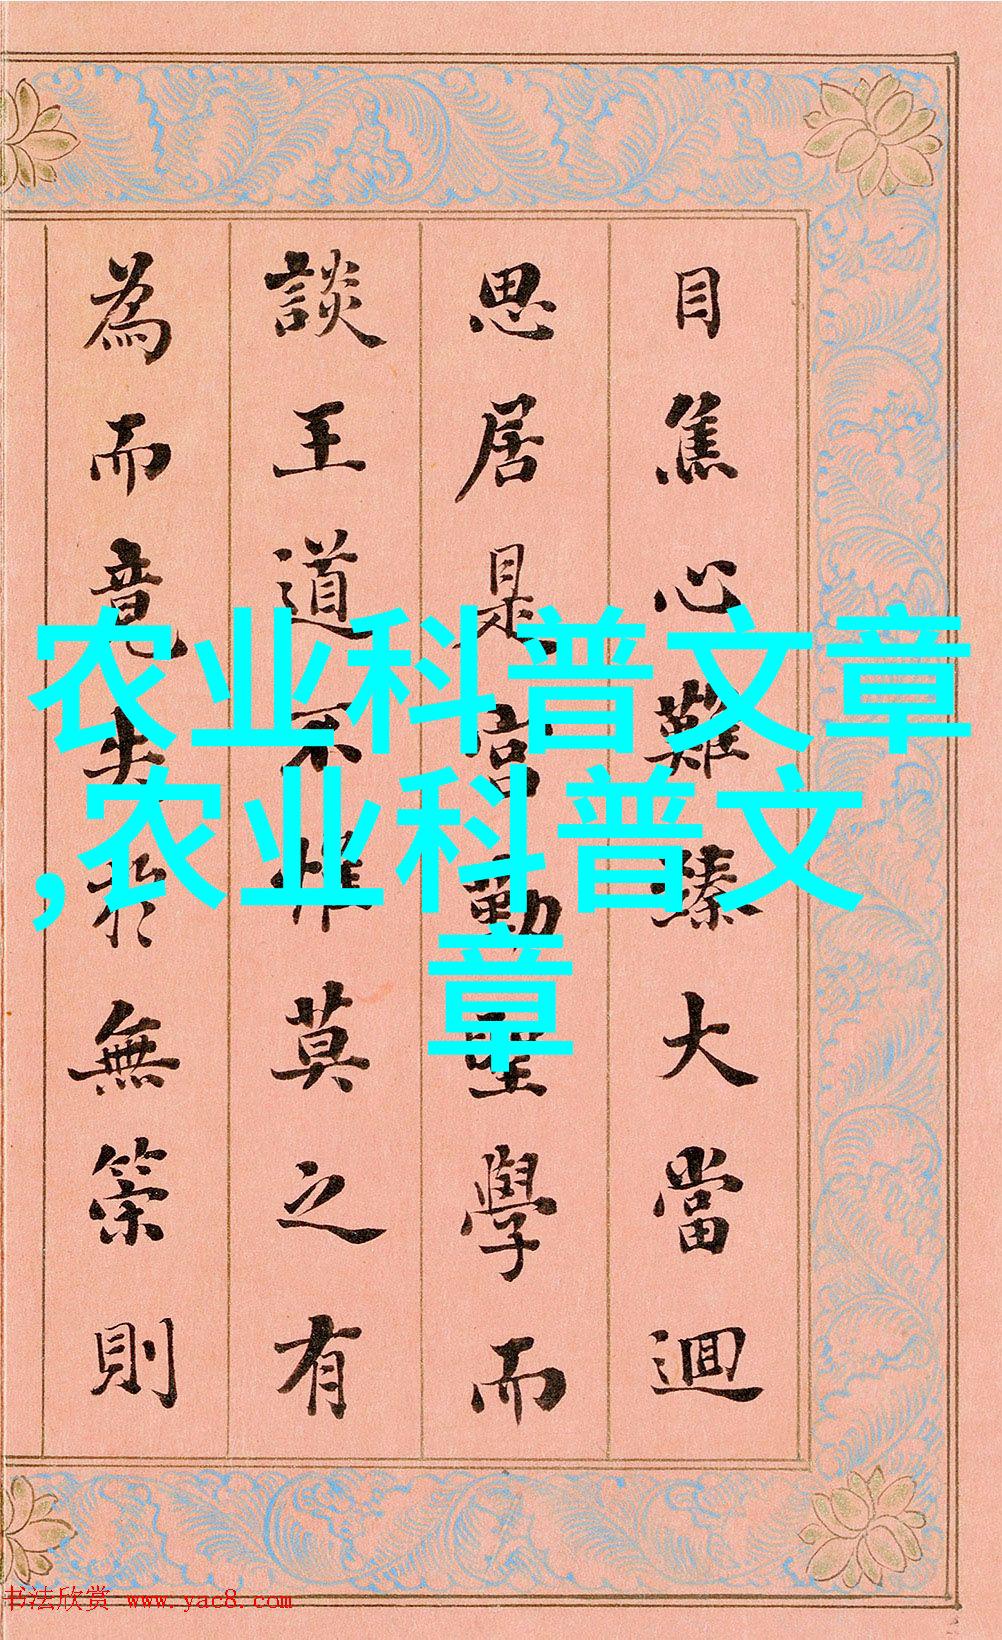 目焦心難臻大當迴
思居是宮勤聖學而
談王道不惟莫之有
為而竟失於無策則
农业科普文章
,农业科普文
章
书法欣赏 www.yac8.com